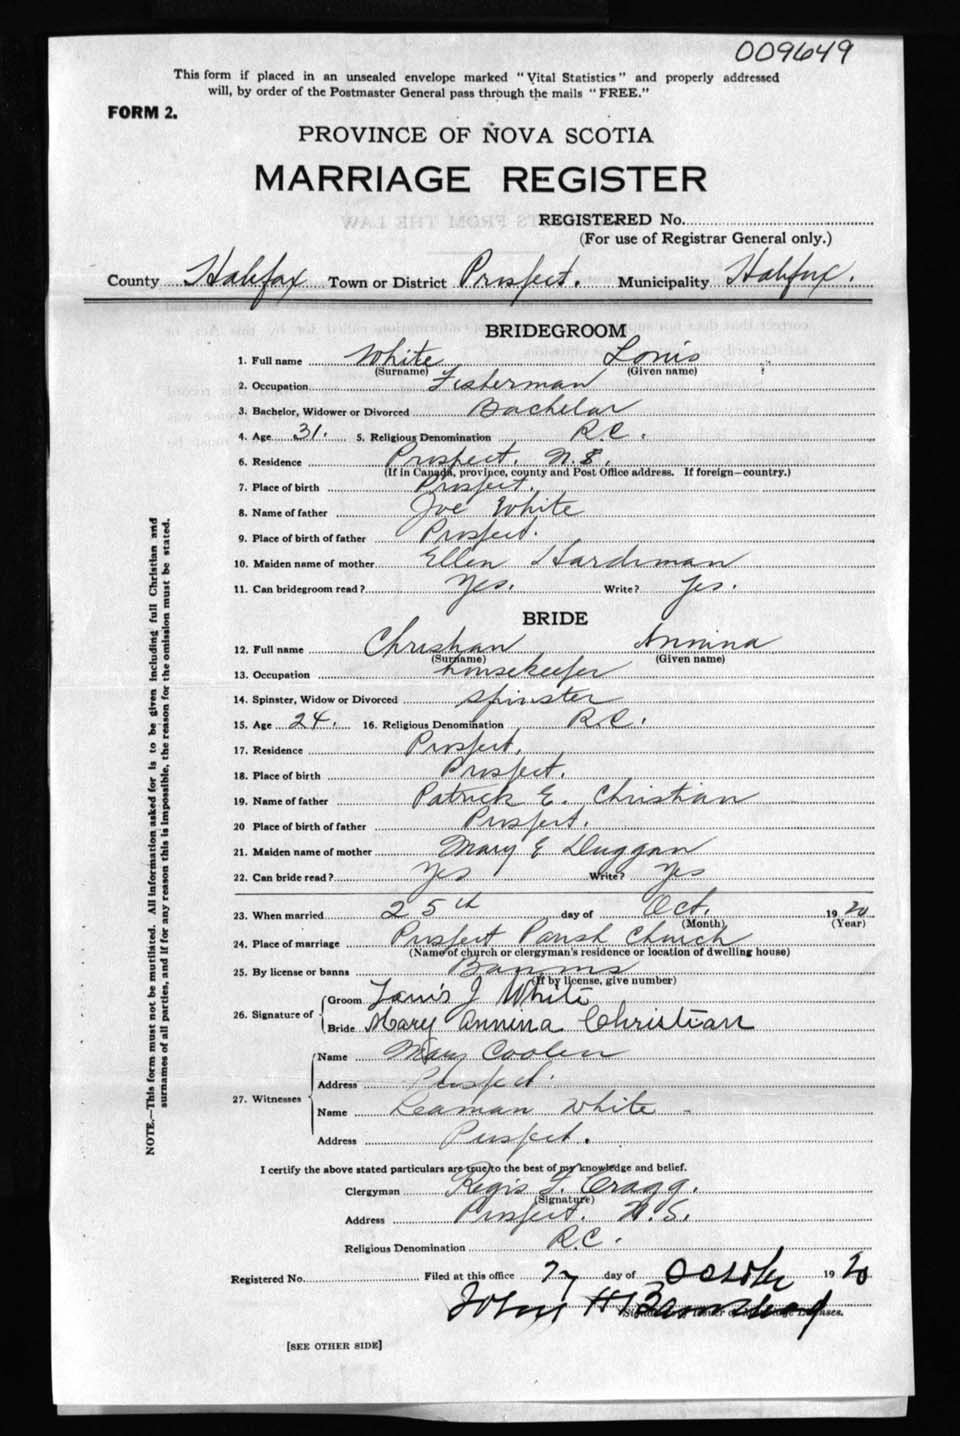 009649
This form if placed in an unsealed envelope marked "Vital Statistics" and properly addressed
will, by order of the Postmaster General pass through the mails "FREE."
FORM 2.
PROVINCE OF NOVA SCOTIA
MARRIAGE REGISTER
REGISTERED No.
(For use of Registrar General only.)
County Halifax Town or District Prospect. Municipality Halifax.
BRIDEGROOM
1. Full name White Louis
(Surname) (Given name)
2. Occupation Fisherman
3. Bachelor, Widower or Divorced Bachelor
4. Age 31. 5. Religious Denomination R.C.
6. Residence Prospect. N.S.
(If in Canada, province, county and Post Office address. If foreign—country.)
7. Place of birth Prospect.
8. Name of father Joe White
9. Place of birth of father Prospect.
10. Maiden name of mother Ellen Hardiman
11. Can bridegroom read? Yes. Write? Yes.
BRIDE
12. Full name Christian Annina
(Surname) (Given name)
13. Occupation housekeeper
14. Spinster, Widow or Divorced Spinster
15. Age 24. 16. Religious Denomination R.C.
17. Residence Prospect.
18. Place of birth Prospect.
19. Name of father Patrick E. Christian
20 Place of birth of father Prospect.
21. Maiden name of mother Mary E Duggan
22. Can bride read? Yes Write? Yes
23. When married 25th day of Oct. 1920
(Month) (Year)
24. Place of marriage Prospect Parish Church
(Name of church or clergyman's residence or location of dwelling house)
25. By license or banns Banns
(If by license, give number)
26. Signature of Groom Louis J White
Bride Mary Annina Christian
27. Witnesses Name Mary Coolen
Address Prospect.
Name Leaman White
Address Prospect.
I certify the above stated particulars are true to the best of my knowledge and belief.
Clergyman Regis L. Cragg.
(Signature)
Address Prospect. N.S.
Religious Denomination R.C.
Registered No. Filed at this office day of October 1920
John H
Signature of Issuer of Marriage Licenses.
[SEE OTHER SIDE]
NOTE.—This form must not be mutilated. All information asked for is to be given including full Christian and
surnames of all parties, and if for any reason this is impossible, the reason for the omission must be stated.